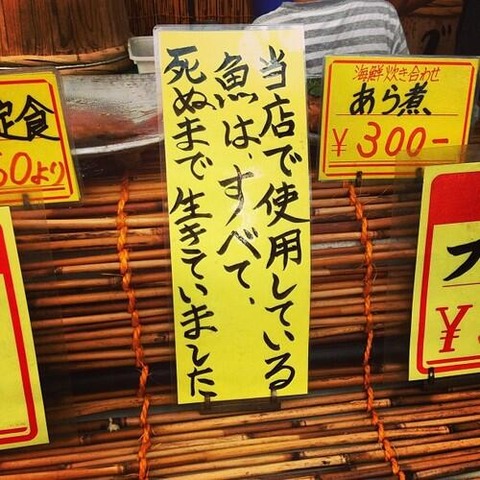 当店で使用している
魚は、すべて、
死ぬまで生きていました
海鮮炊き合わせ
あら煮
¥300-
定食
60より
フ
¥